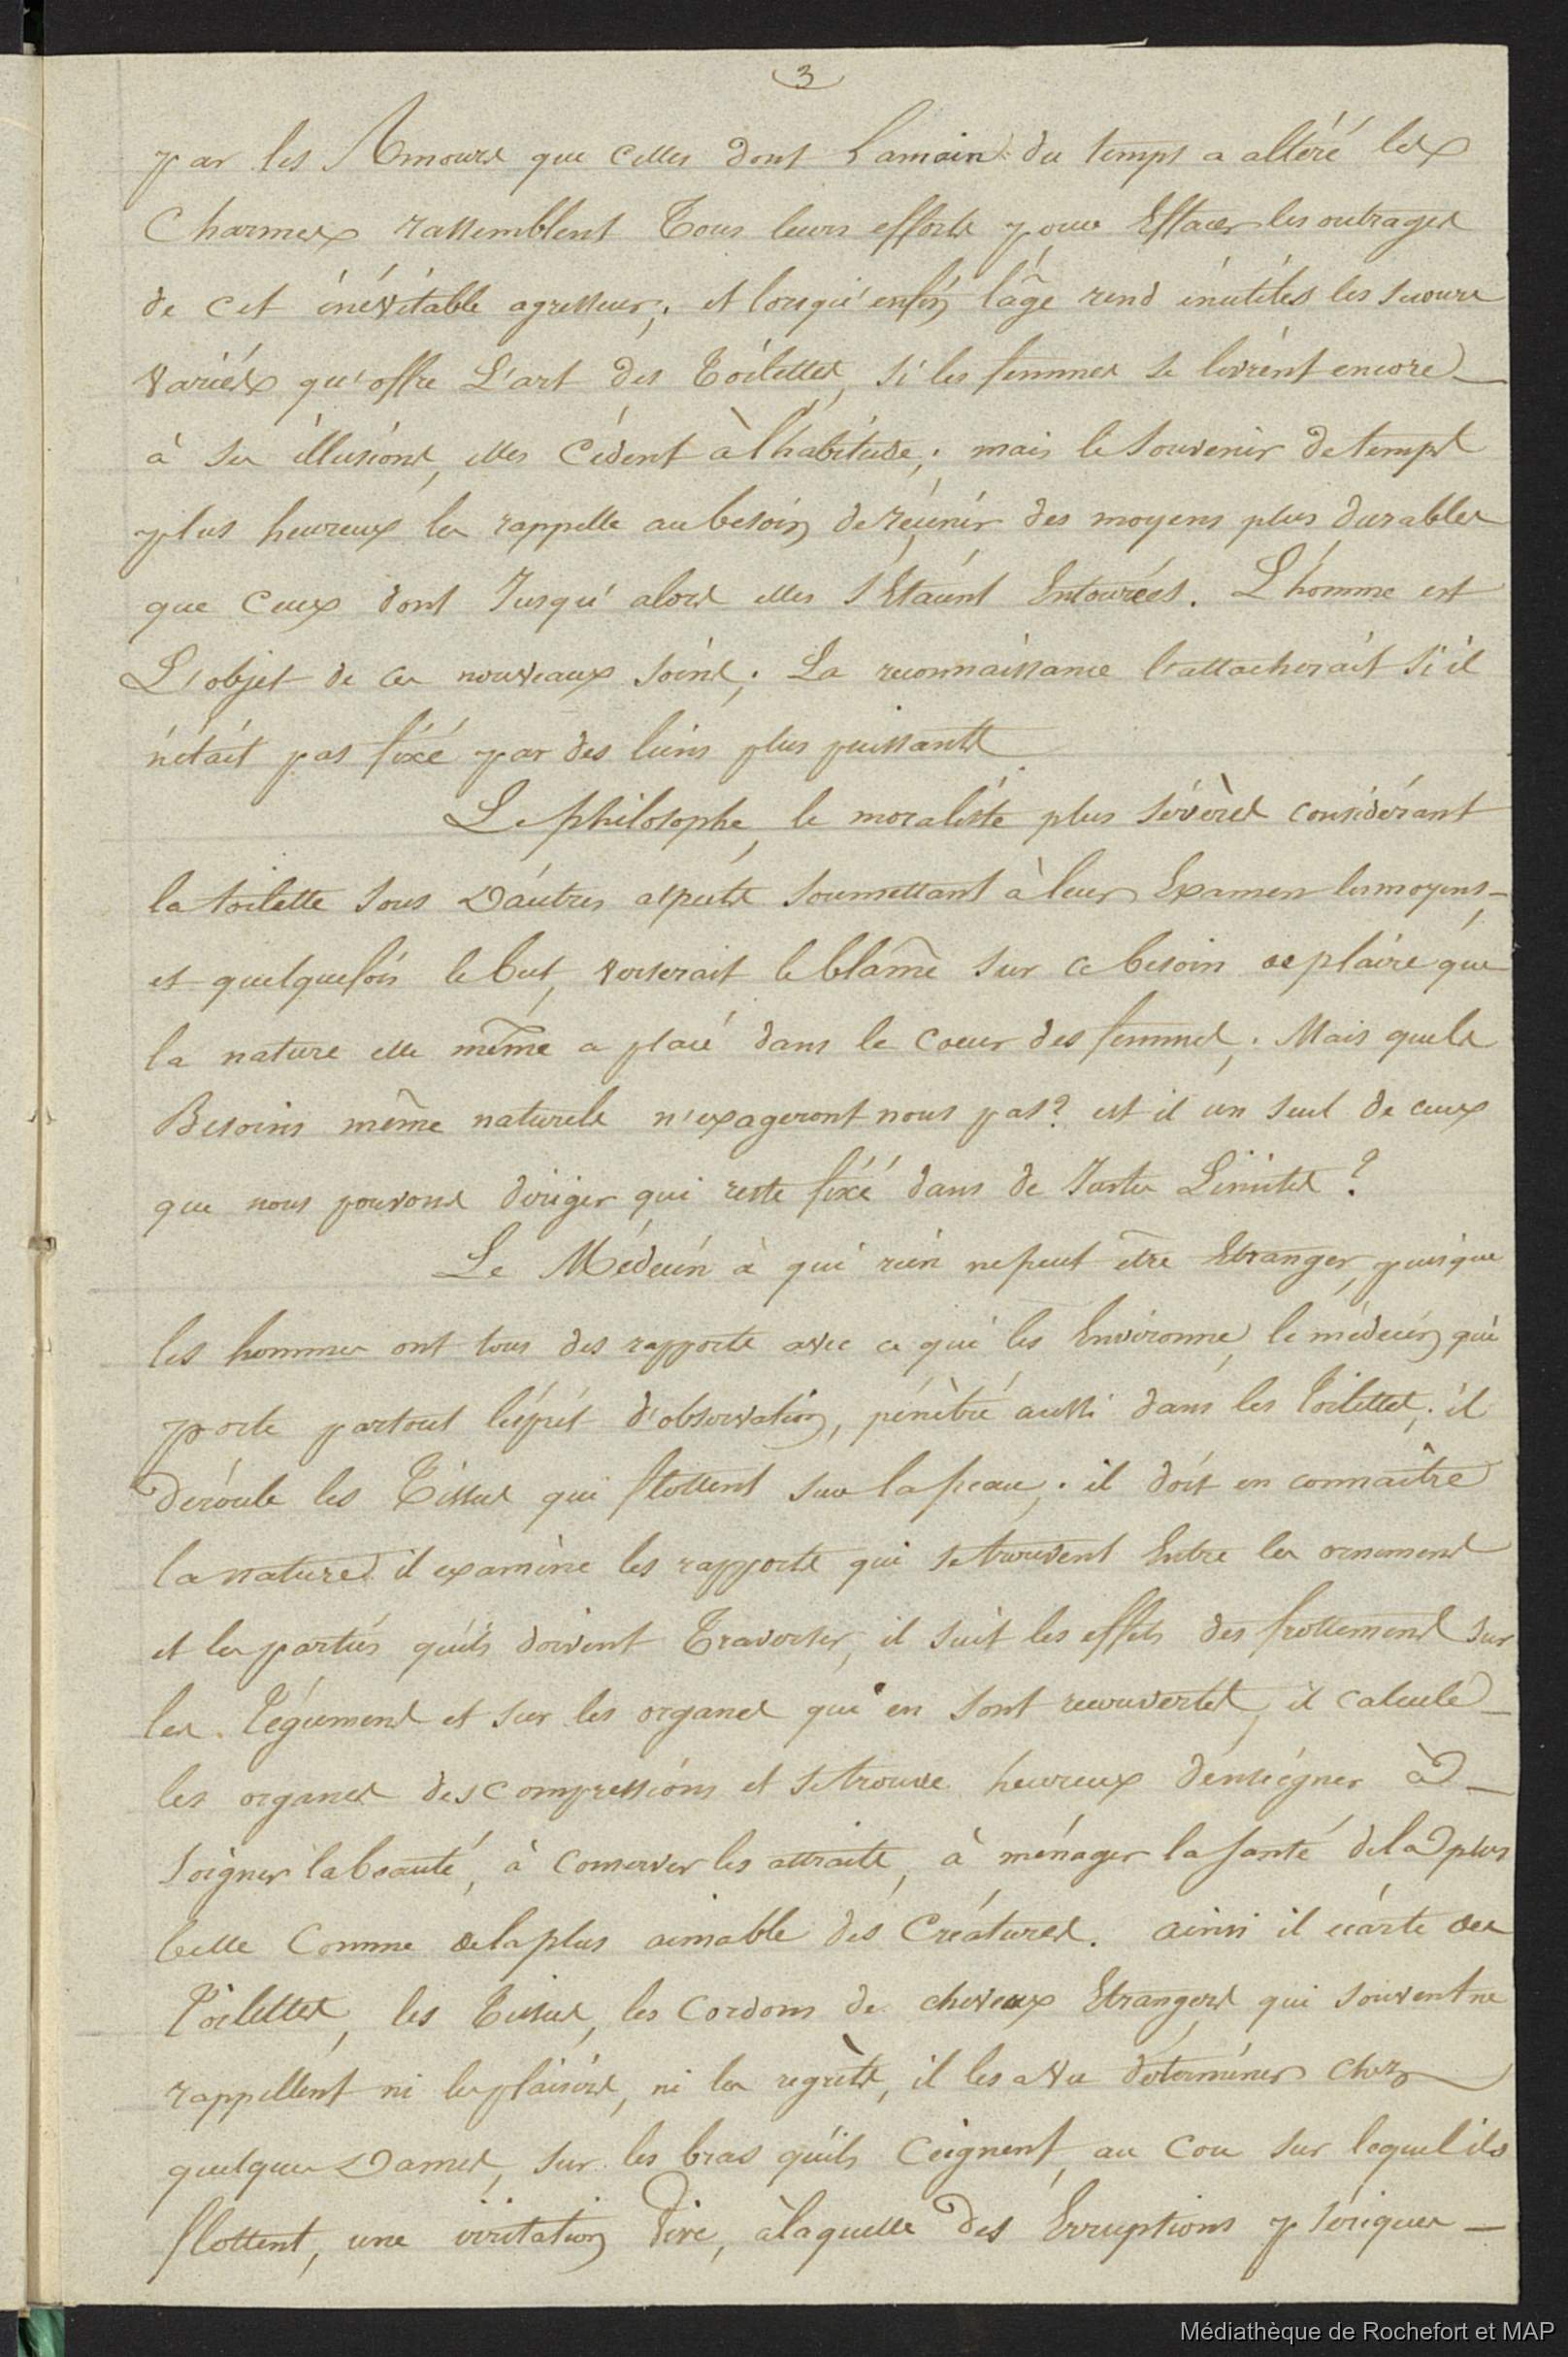 3
par les Amours que celles dont la main du temps a altéré les
Charmes rassemblent Tous leurs efforts pour Effacer les outrages
de cet inévitable agresseur; et lorsqu'enfin l'âge rend inutiles les secours
variés qu'offre L'art des Toilettes, si les femmes se livrent encore
à ses illusions, elles cèdent à l'habitude; mais le souvenir de temps
plus heureux les rappelle au besoin de réunir des moyens plus durables
que Ceux dont Jusqu'alors elles s'Etaient Entourées. L'homme est
L'objet de ces nouveaux soins; La reconnaissance l'attacherait s'il
n'était pas fixé par des liens plus puissants
Le philosophe, le moraliste plus sévères considérant
la toilette sous D'autres aspects soumettant à leur Examen les moyens
et quelquefois le but, verserait le blâme sur ce besoin de plaire que
la nature elle même a placé dans le coeur des femmes; Mais quels
Besoins même naturels n'exageront nous pas? est il un seul de ceux
que nous pouvons diriger qui reste fixé dans de Justes Limites?
Le Médecin à qui rien ne peut être Etranger, puisque
les hommes ont tous des rapports avec ce qui les Environne, le médecin qui
porte partout l'esprit d'observation, pénètre aussi dans les Toilettes; il
déroule les Tissus qui flottent sur la peau; il doit en connaître
la nature il examine les rapports qui se trouvent Entre les ornemens
et les parties qu'ils doivent Traverser, il suit les effets des frottemens sur
les Tégumens et sur les organes qui en sont recouvertes, il calcule
les organes des compressions et se trouve heureux d'enseigner à
soigner la beauté, à conserver les attraits, à ménager la santé de la plus
belle Comme de la plus aimable des Créatures. ainsi il écarte des
Toilettes, les Tissus, les Cordons de cheveux Etrangers qui souvent ne
rappellent ni les plaisirs, ni les regrèts, il les a vu déterminer chez
quelques Dames, sur les bras qu'ils Ceignent, au Cou sur lequel ils
flottent, une irritation Vive, à laquelle des Erruptions psoriques
Médiathèque de Rochefort et MAP